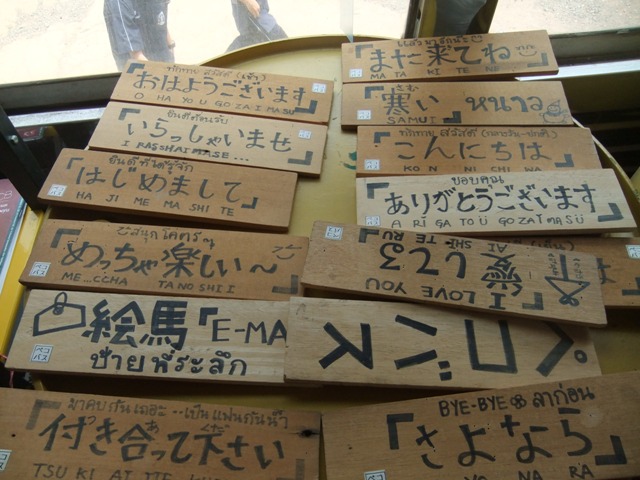 ทักทาย สวัสดี (เช้า)
「おはようございます」
O HA YO U GO ZA I MA SU
ยินดีต้อนรับ
いらっしゃいませ」
I RASSHAI MASE...
ยินดีที่ได้รู้จัก
「はじめまして」
HA JI ME MA SHI TE
めっちゃ楽しい~
ME...CCHA TA NO SHI I
絵馬「E-MA
ป้ายที่ระลึก
มาคบกันเถอะ..เป็นแฟนกันน้า
「付き合って下さい
TSU KI AI TTE
แล้วมาอีกนะ
「また来てね」
MA TA KI TE NE
「寒い หนาว
さむ
SAMUI
ทักทาย สวัสดี
「こんにちは」
KO N NI CHI WA
ขอบคุณ
「ありがとうございます」
A RI GA TO U GO ZA I MA SU
愛してる
AI SHI TE RU
I LOVE YOU
BYE-BYE ลาก่อน
「さよなら」
YO NA RA